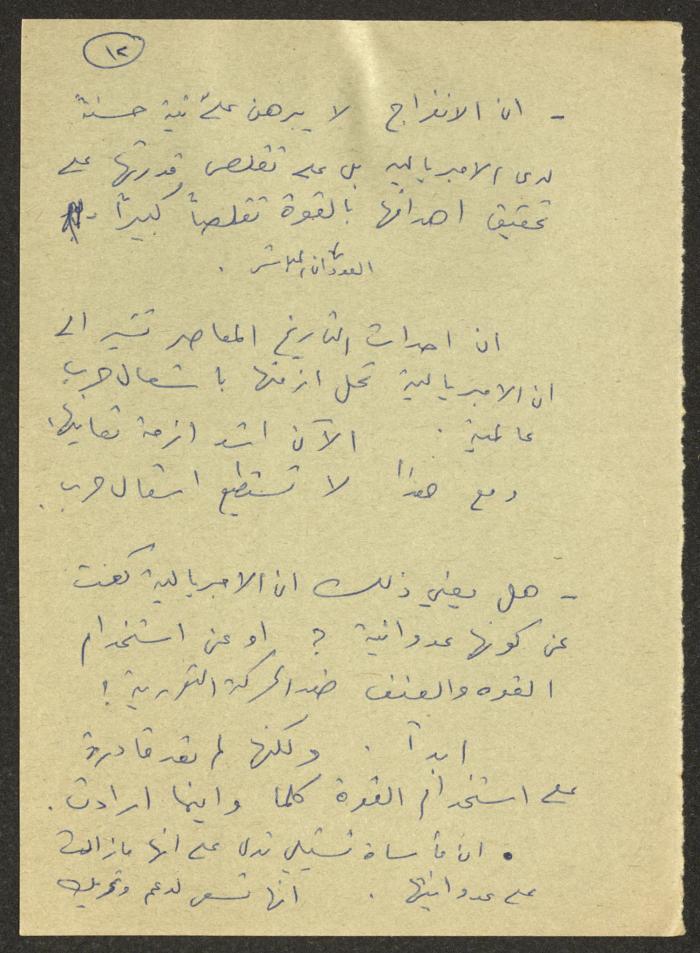 ١٢
- ان الانفراج لا يبرهن على نية حسنة
لدى الامبريالية بل على تقلص قدرتها على
تحقيق اهدافها بالقوة تقلصاً كبيراً
العدوان المباشر .
ان احداث التاريخ المعاصر تشير الى
ان الامبريالية تحل ازمتها باشعال حرب
عالمية . الآن اشد ازمة تعانيها،
ومع هذا لا تستطيع اشعال حرب .
- هل يعني ذلك ان الامبريالية كفت
عن كونها عدوانية ؟ او عن استخدام
القوه والعنف ضد الحركة الثورية !
ابداً . ولكنها لم تعد قادرة
على استخدام القوة كلما واينما ارادت .
• ان مأساة تشيلي تدل على انها مازالت
على عدوانيتها . انها تسعى لدعم وتحريك